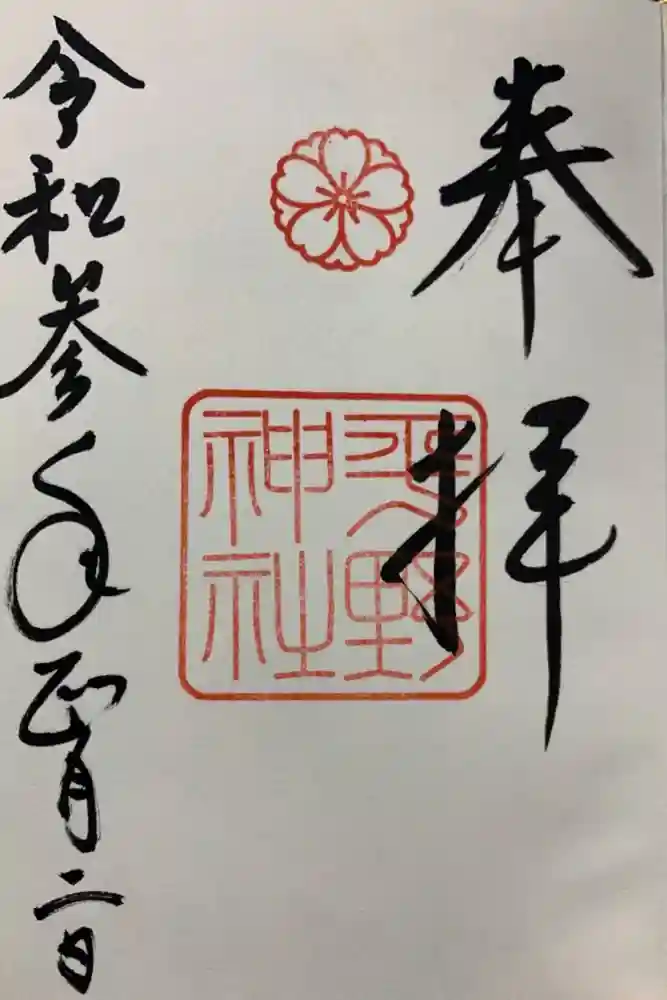 奉拝
平野
神社
令和参年正月二日